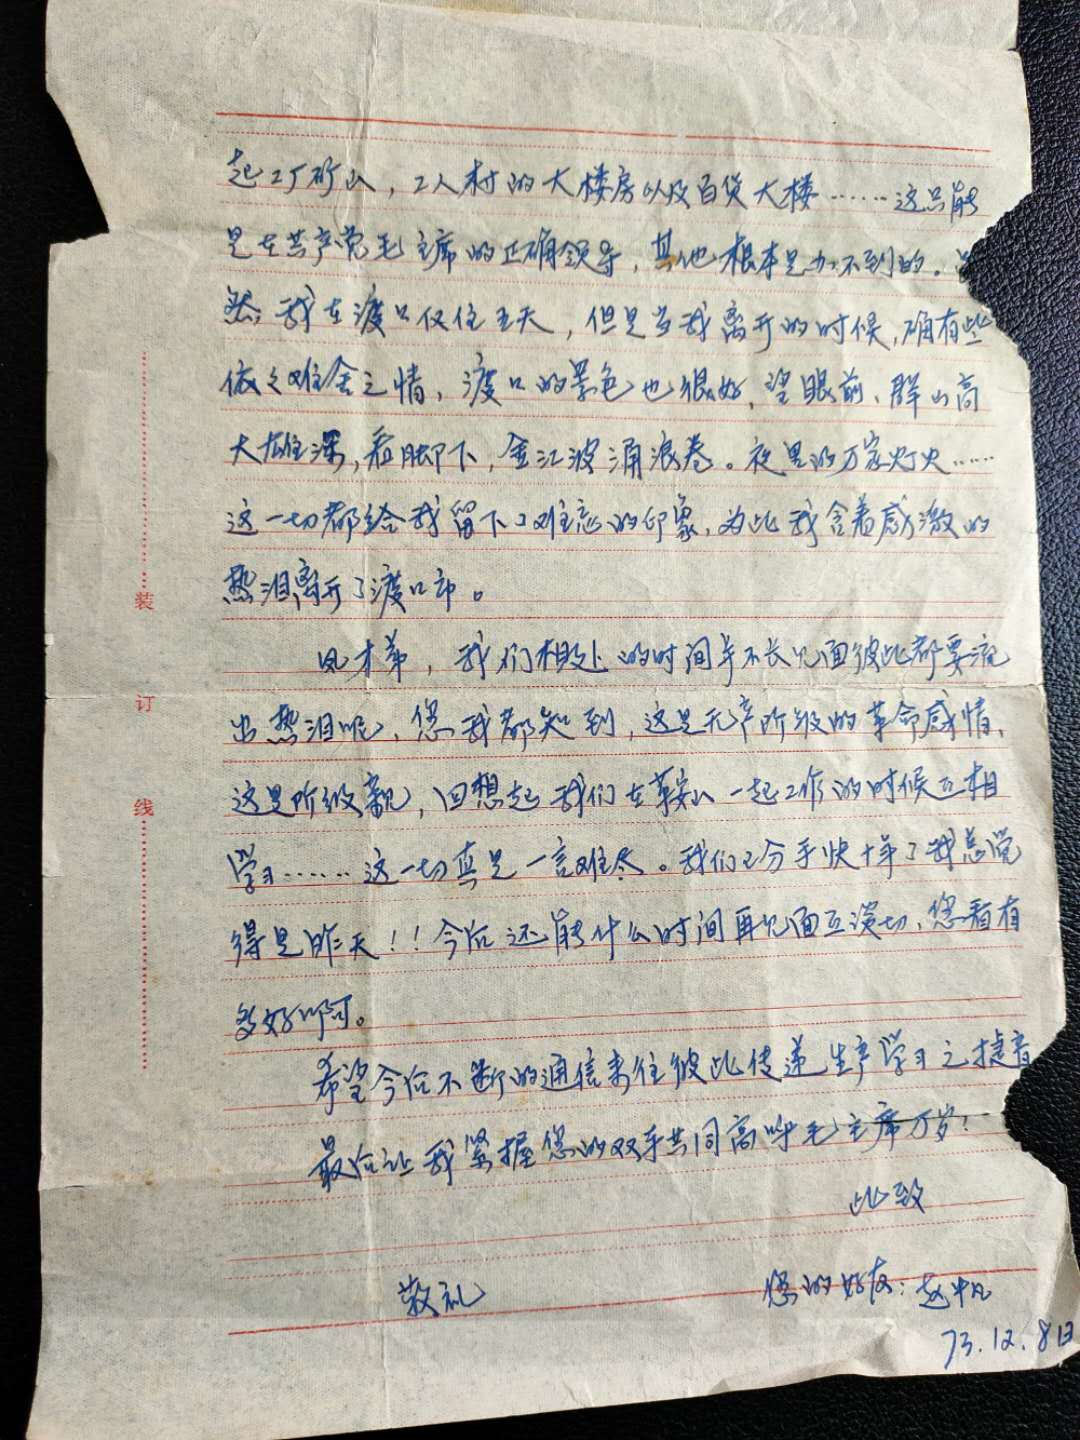 起工厂矿山，工人村的大楼房以及百货大楼……这只能
是在共产党毛主席的正确领导，其他根本是办不到的。虽
然我在渡口仅住五天，但是当我离开的时候，确有些
依々难舍之情，渡口的景色也很好，望眼前、群山高
大雄深，看脚下，金江波涌浪卷。夜里的万家灯火……
这一切都给我留下了难忘的印象，为此我含着感激的
热泪离开了渡口市。
凤才弟，我们相处的时间并不长见面彼此都要流
出热泪呢，您我都知到，这是无产阶级的革命感情、
这是阶级亲，回想起我们在鞍山一起工作的时候互相
学习……这一切真是一言难尽。我们已分手快十年了我总觉
得是昨天！！今后还能什么时间再见面互谈一切，您看有
多好啊。
希望今后不断的通信来往彼此传递生产学习之捷音
最后让我紧握您的双手共同高呼毛主席万岁！
此致
敬礼
您的好友：赵
73.12.8日
装
订
线